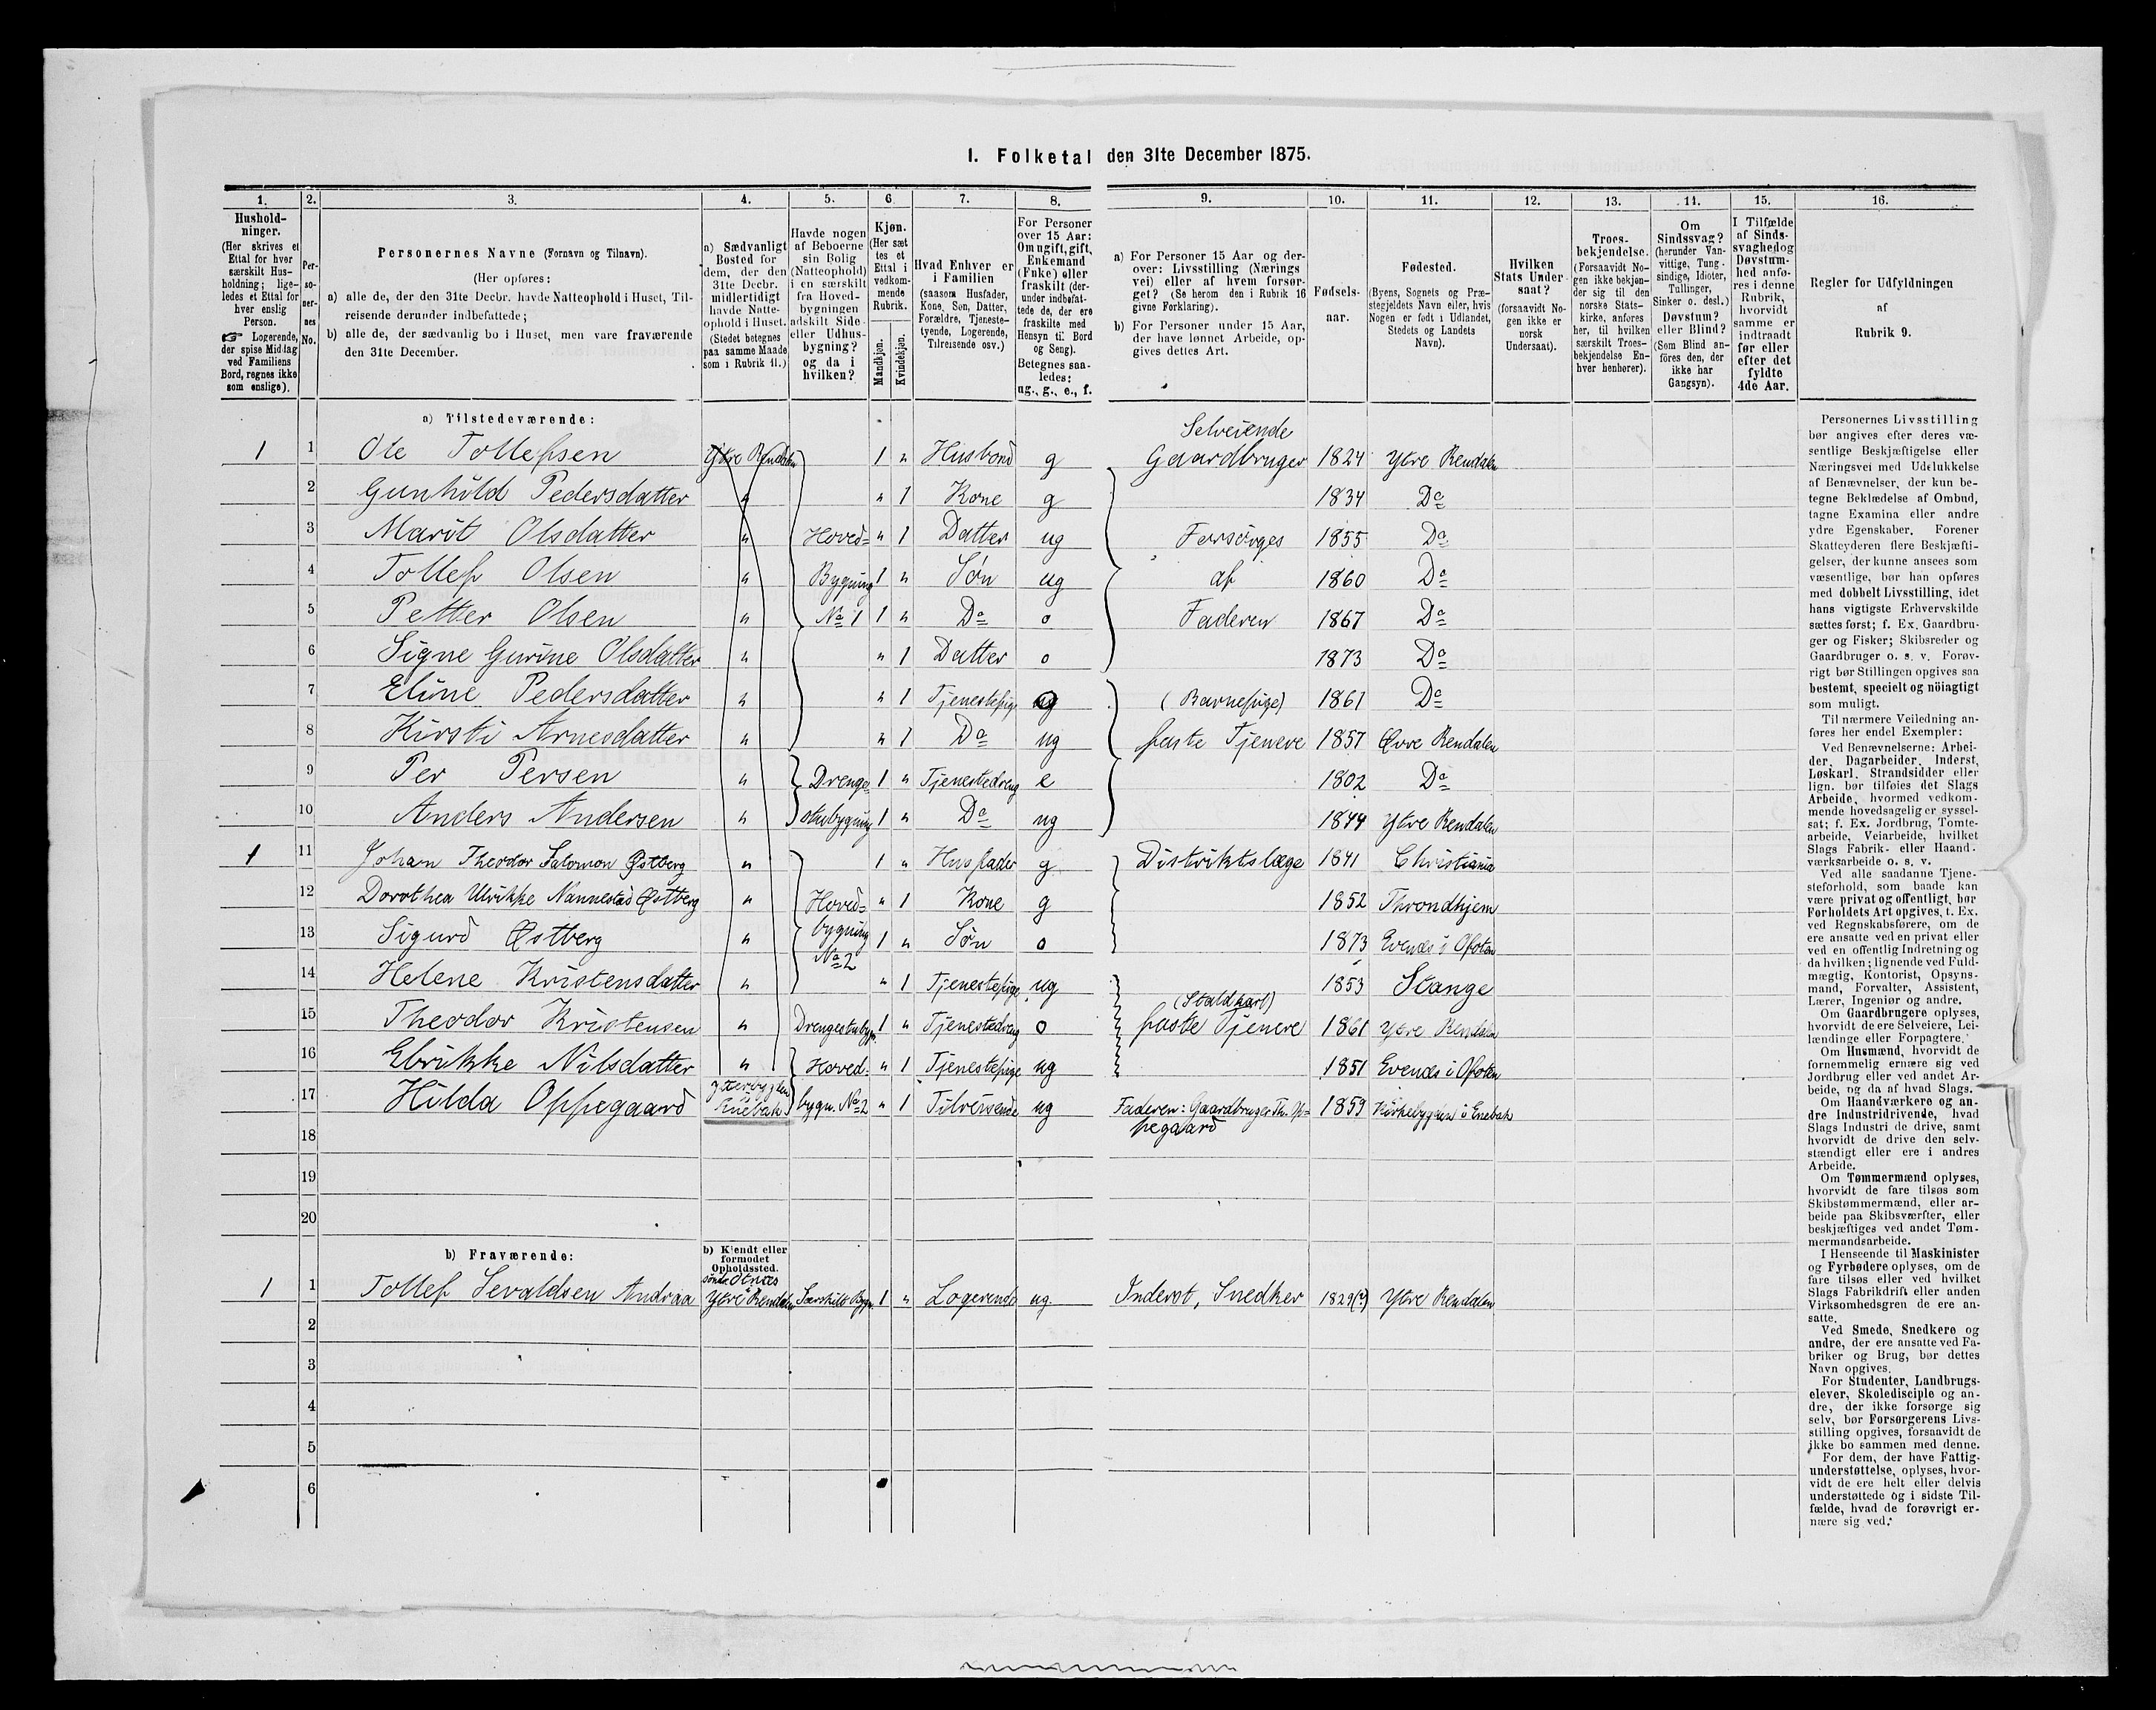 I. Folketal den 31te December 1875.
1. 2. 3. 4. 5. 6 7. 8. 9. 10. 11. 12. 13. 14. 15. 16.
Hushold-
ninger.
(Her skrives et
Ettal for hver
særskilt Hus-
holdning; lige-
ledes et Ettal for
hver enslig
Person.
☞ Logerende,
der spise Middag
ved Familiens
Bord, regnes ikke
som enslige).
Per-
so-
ner-
nes
No.
Personernes Navne (Fornavn og Tilnavn).
(Her opføres:
a) alle de, der den 31te Decbr. havde Natteophold i Huset, Til-
reisende derunder indbefattede;
b) alle de, der sædvanlig bo i Huset, men vare fraværende
den 31te December.
a) Sædvanligt
Bosted for
dem, der den
31te Decbr.
midlertidigt
havde Natte-
ophold i Huset.
(Stedet betegnes
paa samme Maade
som i Rubrik 11.)
Havde nogen
af Beboerne
sin Bolig
(Natteophold)
i en særskilt
fra Hoved-
bygningen
adskilt Side-
eller Udhus-
bygning?
og da i
hvilken?
Kjøn.
(Her sæt
tes et
Ettal i
vedkom-
mende
Rubrik.
Mandkjøn.
Kvindekjøn.
Hvad Enhver er
i Familien
(saasom Husfader,
Kone, Søn, Datter,
Forældre, Tjeneste-
tyende, Logerende,
Tilreisende osv.)
For Personer
over 15 Aar:
Om ugift, gift,
Enkemand
(Enke) eller
fraskilt (der-
under indbefat-
tede de, der ere
fraskilte med
Hensyn til Bord
og Seng).
Betegnes saa-
ledes:
ug., g., e., f.
a) For Personer 15 Aar og der-
over: Livsstilling (Nærings
vei) eller af hvem forsør-
get? (Se herom den i Rubrik 16
givne Forklaring).
b) For Personer under 15 Aar,
der have lønnet Arbeide, op-
gives dettes Art.
Fødsels-
aar.
Fødested.
(Byens, Sognets og Præ-
stegjeldets Navn eller, hvis
Nogen er født i Udlandet,
Stedets og Landets
Navn).
Hvilken
Stats Under-
saat?
(forsaavidt No-
gen ikke er
norsk
Undersaat).
Troes-
bekjendelse.
(Forsaavidt No-
gen ikke bekjen-
der sig til den
norske Stats-
kirke, anføres
her, til hvilken
særskilt Troes-
bekjendelse En-
hver henhører).
Om
Sindssvag?
(herunder Van-
vittige, Tung-
sindige, Idioter,
Tullinger,
Sinker o. desl.)
Døvstum?
eller Blind?
(Som Blind an-
føres den, der
ikke har
Gangsyn).
I Tilfælde
af Sinds-
svaghed og
Døvstum-
hed anfø-
res i denne
Rubrik,
hvorvidt
samme er
indtraadt
før eller
efter det
fyldte
4de Aar.
Regler for Udfyldningen
af
Rubrik 9.
a) Tilstedeværende:
Selveiende
1 1 Ole Tollefsen Ytre Rendalen 1 " Husbond g Gaardbruger 1824 Ytre Rendalen
2 Gunhild Pedersdatter " " 1 Kone g 1834 Do
3 Marit Olsdatter " Hoved- " 1 Datter ug Forsørges 1855 Do
4 Tollef Olsen " Bygning 1 " Søn ug af 1860 Do
5 Petter Olsen " No 1 1 " Do o Faderen 1867 Do
6 Signe Gurine Olsdatter " " 1 Datter o 1873 Do
7 Eline Pedersdatter " " 1 Tjenestepige ug (Barnepige) 1861 Do
8 Kirsti Arnesdatter " " 1 Do ug faste Tjenere 1857 Øvre Rendalen
9 Per Persen " Drenge- 1 " Tjenestedreng e 1802 Do
10 Anders Andersen " stubygning 1 " Do ug 1844 Ytre Rendalen
1 11 Johan Theodor Salomon Østberg " 1 " Husfader g Distriktslæge 1841 Christiania
12 Dorothea Ulrikke Nannestad Østberg " Hoved- " 1 Kone g 1852 Throndhjem
13 Sigurd Østberg " bygning 1 " Søn o 1873 Evenæs i Ofoten
No 2
14 Helene Kristensdatter " " 1 Tjenestepige ug 1853 Stange
(Staldkarl)
15 Theodor Kristensen " Drengestubygn. 1 " Tjenestedreng o faste Tjenere 1861 Ytre Rendalen
16 Elrikke Nilsdatter " Hoved- " 1 Tjenestepige ug 1851 Evenæs i Ofoten
17 Hilda Oppegaard Enebak bygn. No 2 " 1 Tilreisende ug Faderen: Gaardbruger Th. Op- 1859 Kirkebygden i Enebak
pegaard
18
19
20
b) Fraværende:
b) Kjendt eller
formodet
Opholdssted.
søndre Otnæs
1 1 Tollef Sevaldsen Andraa Ytre Rendalen Særskilt Bygn. 1 " Logerende ug. Inderst, Snedker 1829(?) Ytre Rendalen
2
3
4
5
6
Personernes Livsstilling
bør angives efter deres væ-
sentlige Beskjæftigelse eller
Næringsvei med Udelukkelse
af Benævnelser, der kun be-
tegne Beklædelse af Ombud,
tagne Examina eller andre
ydre Egenskaber. Forener
Skatteyderen flere Beskjæfti-
gelser, der kunne ansees som
væsentlige, bør han opføres
med dobbelt Livsstilling, idet
hans vigtigste Erhvervskilde
sættes først; f. Ex. Gaardbru-
ger og Fisker; Skibsreder og
Gaardbruger o. s. v. Forøv-
rigt bør Stillingen opgives saa
bestemt, specielt og nöiagtigt
som muligt.
Til nærmere Veiledning an-
føres her endel Exempler:
Ved Benævnelserne: Arbei-
der, Dagarbeider, Inderst,
Løskarl, Strandsidder eller
lign. bør tilføies det Slags
Arbeide, hvormed vedkom-
mende hovedsagelig er syssel-
sat; f. Ex. Jordbrug, Tomte-
arbeide, Veiarbeide, hvilket
Slags Fabrik- eller Haand-
værksarbeide o. s. v.
Ved alle saadanne Tjene-
steforhold, som baade kan
være privat og offentligt, bør
Førholdets Art opgives, t. Ex.
ved Regnskabsførere, om de
ere ansatte ved en privat eller
ved en offentlig Indretning og
da hvilken; lignende ved Fuld-
mægtig, Kontorist, Opsyns-
mand, Forvalter, Assistent,
Lærer, Ingeniør og andre.
Om Gaardbrugere oplyses,
hvorvidt de ere Selveiere, Lei-
lændinge eller Forpagtere.
Om Husmænd, hvorvidt de
fornemmelig ernære sig ved
Jordbrug eller ved andet Ar-
beide, og da af hvad Slags.
Om Haandværkere og an-
dre Industridrivende, hvad
Slags Industri de drive, samt
hvorvidt de drive den selv-
stændigt eller ere i andres
Arbeide.
Om Tømmermænd oplyses,
hvorvidt de fare tilsøs som
Skibstømmermænd, eller ar-
beide paa Skibsværfter, eller
beskjæftiges ved andet Tøm-
mermandsarbeide.
I Henseende til Maskinister
og Fyrbødere oplyses, om de
fare tilsøs eller ved hvilket
Slags Fabrikdrift eller anden
Virksomhedsgren de ere an-
satte.
Ved Smede, Snedkere og
andre, der ere ansatte ved Fa-
briker og Brug, bør dettes
Navn opgives.
For Studenter, Landbrugs-
elever, Skoledisciple og an-
dre, der ikke forsørge sig
selv, bør Forsørgerens Livs-
stilling opgives, forsaavidt de
ikke bo sammen med denne.
For dem, der have Fattig-
understøttelse, oplyses, hvor-
vidt de ere helt eller delvis
understøttede og i sidste Til-
fælde, hvad de forøvrigt er-
nære sig ved.